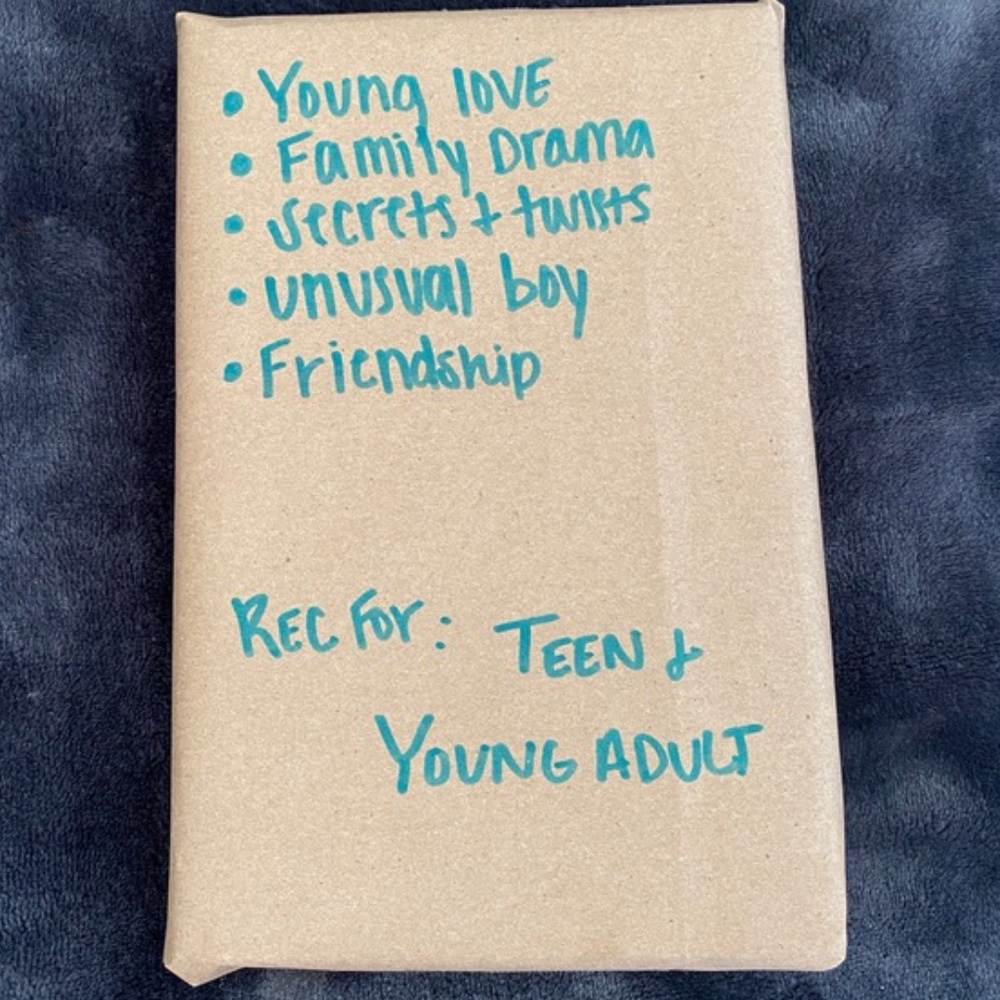 • Young love
• Family Drama
• secrets + twists
• unusual boy
• Friendship
REC FOR: TEEN &
YOUNG ADULT